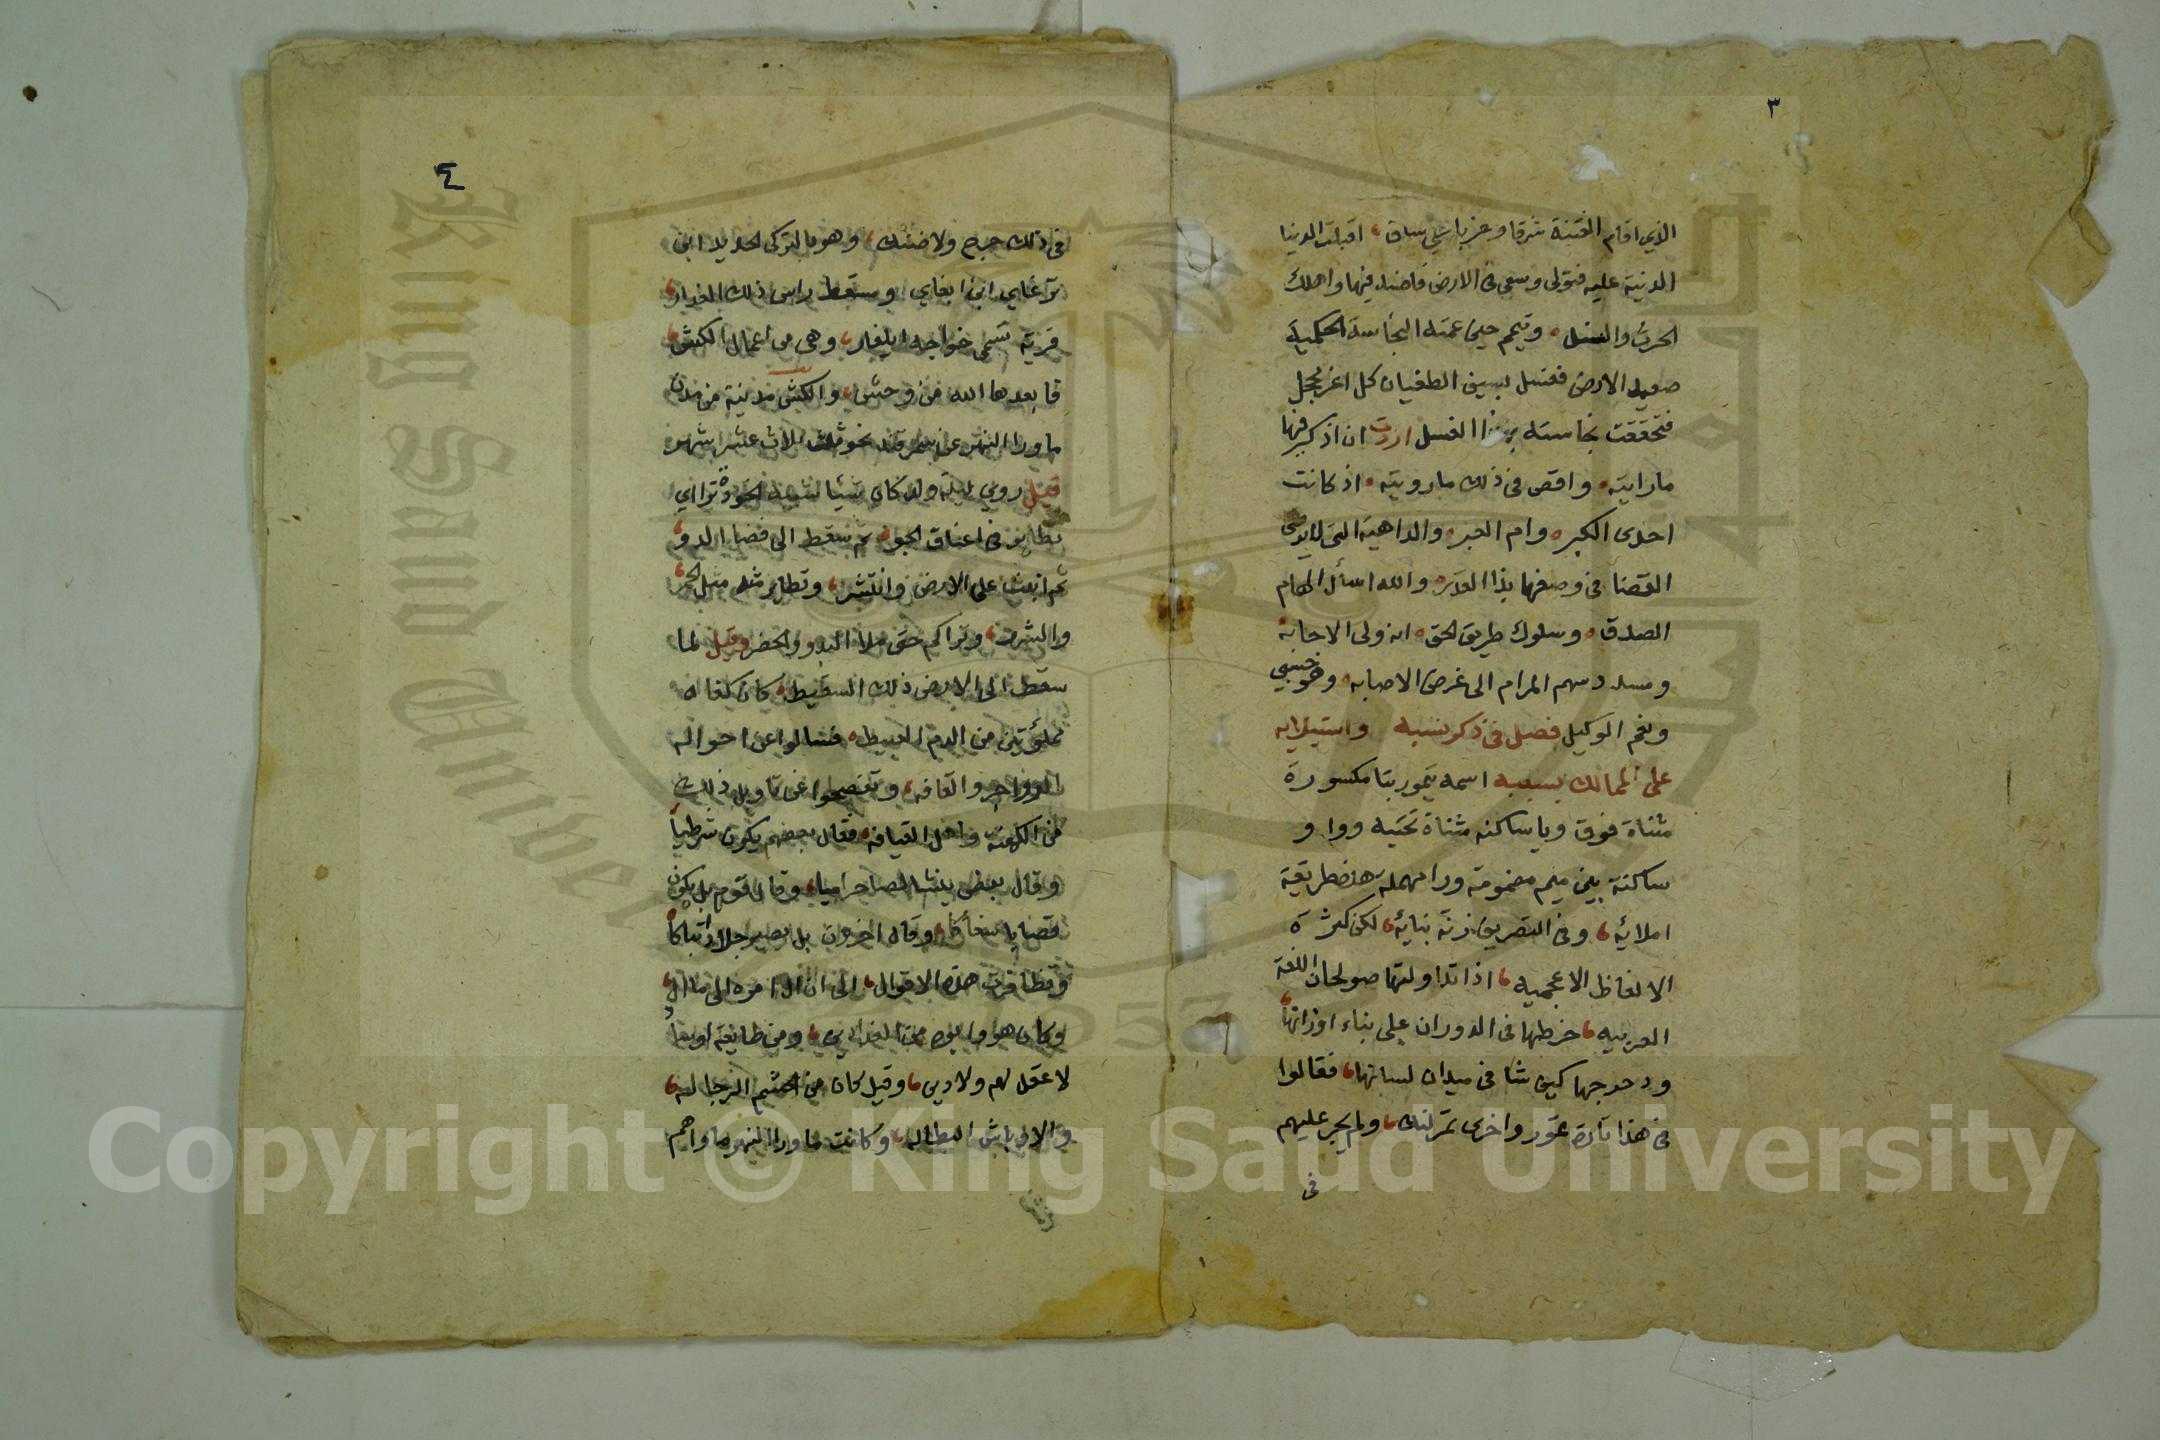 ٣
الذي اقام الفتنة شرقا وغربا على ساق، اقبلت الدنيا
الدنية عليه فتولى وسعى في الارض فافسد فيها واهلك
الحرث والنسل، وتيمم حين عمته النجاسة الحكمية
صعيد الارض فغسل بسيف الطغيان كل اغر محجل
فتحققت نجاسته بهذا الغسل اردت ان اذكر فيها
ما رايته، واقص في ذلك ما رويته، اذ كانت
احدى الكبر، وام العبر، والداهية التي لا يرضى
القضا في وصفها بذا القدر، والله اسأل الهام
الصدق، وسلوك طريق الحق، انه ولى الاجابة
ومسدد سهم المرام الى غرض الاصابه، وهو حسبي
ونعم الوكيل فصل في ذكر نسبه واستيلايه
على الممالك بسببه اسمه تيمور بتا مكسورة
مثناة فوق ويا ساكنه مثناة تحتيه وواو
ساكنة بين ميم مضمومة ورا مهملة هذه طريقة
املائيه، وفي التصريف زنة بنائه، لكن كثرة
الالفاظ الاعجميه، اذا تداولتها صولجان اللغة
العربيه، خرطها في الدوران على بناء اوزانها،
ودحرجها كيف شا في ميدان لسانها، فقالوا
في هذا تارة تمور واخرى تمرلنك، ولم يجر عليهم
في
٤
في ذلك حرج ولا ضنك، وهو بالتركي الحديد ابن
ترغاي ابن ابغاي ومسقط راس ذلك الغدار،
قرية تسمى خواجه ايلغار، وهي من اعمال الكش،
فابعدها الله من وحش، والكش مدينة من مدن
ماورا النهر عن سمرقند نحو ثلاث عشر اشهر
قيل روي ليلة ولد كان شيا شبيه الخوذة تراآي
تطاير في اعناق الجو، ثم سقط الى فضا الدو،
ثم انبث على الارض وانتشر، وتطاير منه مثل الجمر
والشرر، وتراكم حتى ملا البدو والحضر وقيل لما
سقط الى الارض ذلك السقيط، كان كفاه
مملؤتين من الدم العبيط، فسالوا عن احواله
الزواجر والقافه، وتفحصوا عن تاويل ذلك
من الكهنة واهل القيافه، فقال بعضهم يكون شرطيا
وقال بعض ينشا لصا حراميا، وقال قوم بل يكون
قصابا سفاكا، وقال اخرون بل يصير جلادا بتاكا،
وتظافرت هذه الاقوال، الى ان ال امره الى ما ال،
وكان هو وابوه من الفدادين، ومن طايفة اوشاب
لا عقل لهم ولا دين، وقيل كان من الحشم الرجاله،
والاوباش البطاله، وكانت ماورا النهر ماواهم